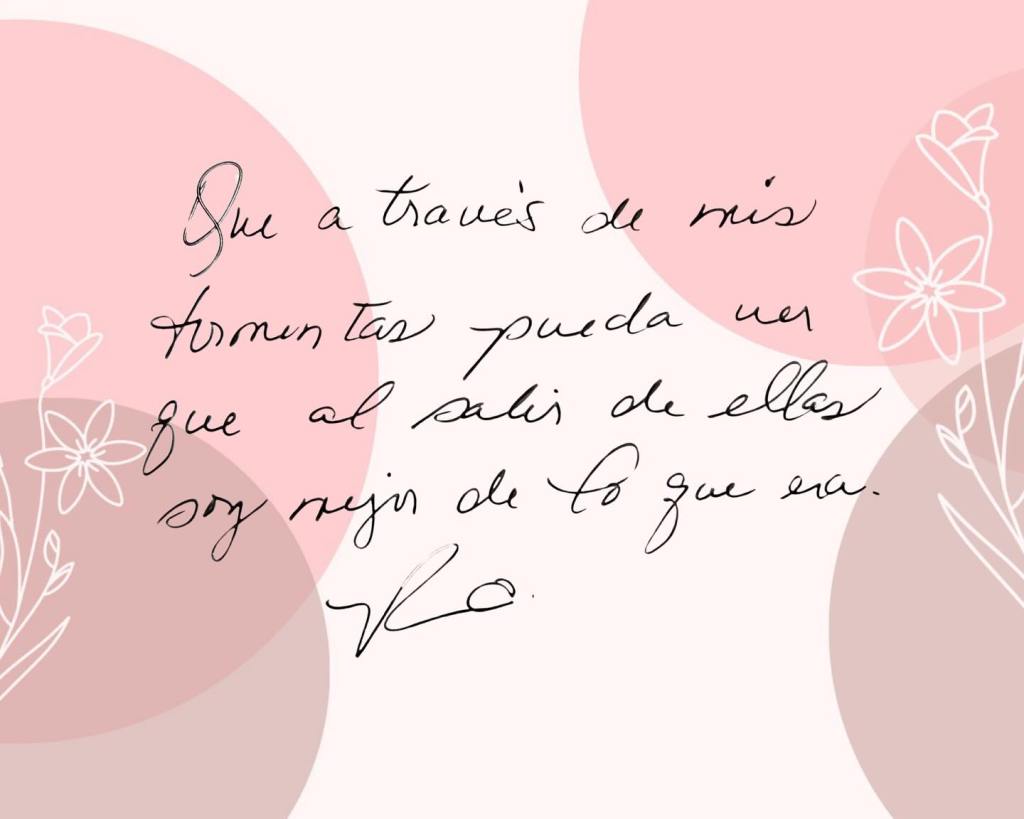 Que a través de mis
tormentas pueda ver
que al salir de ellas
soy mejor de lo que era.